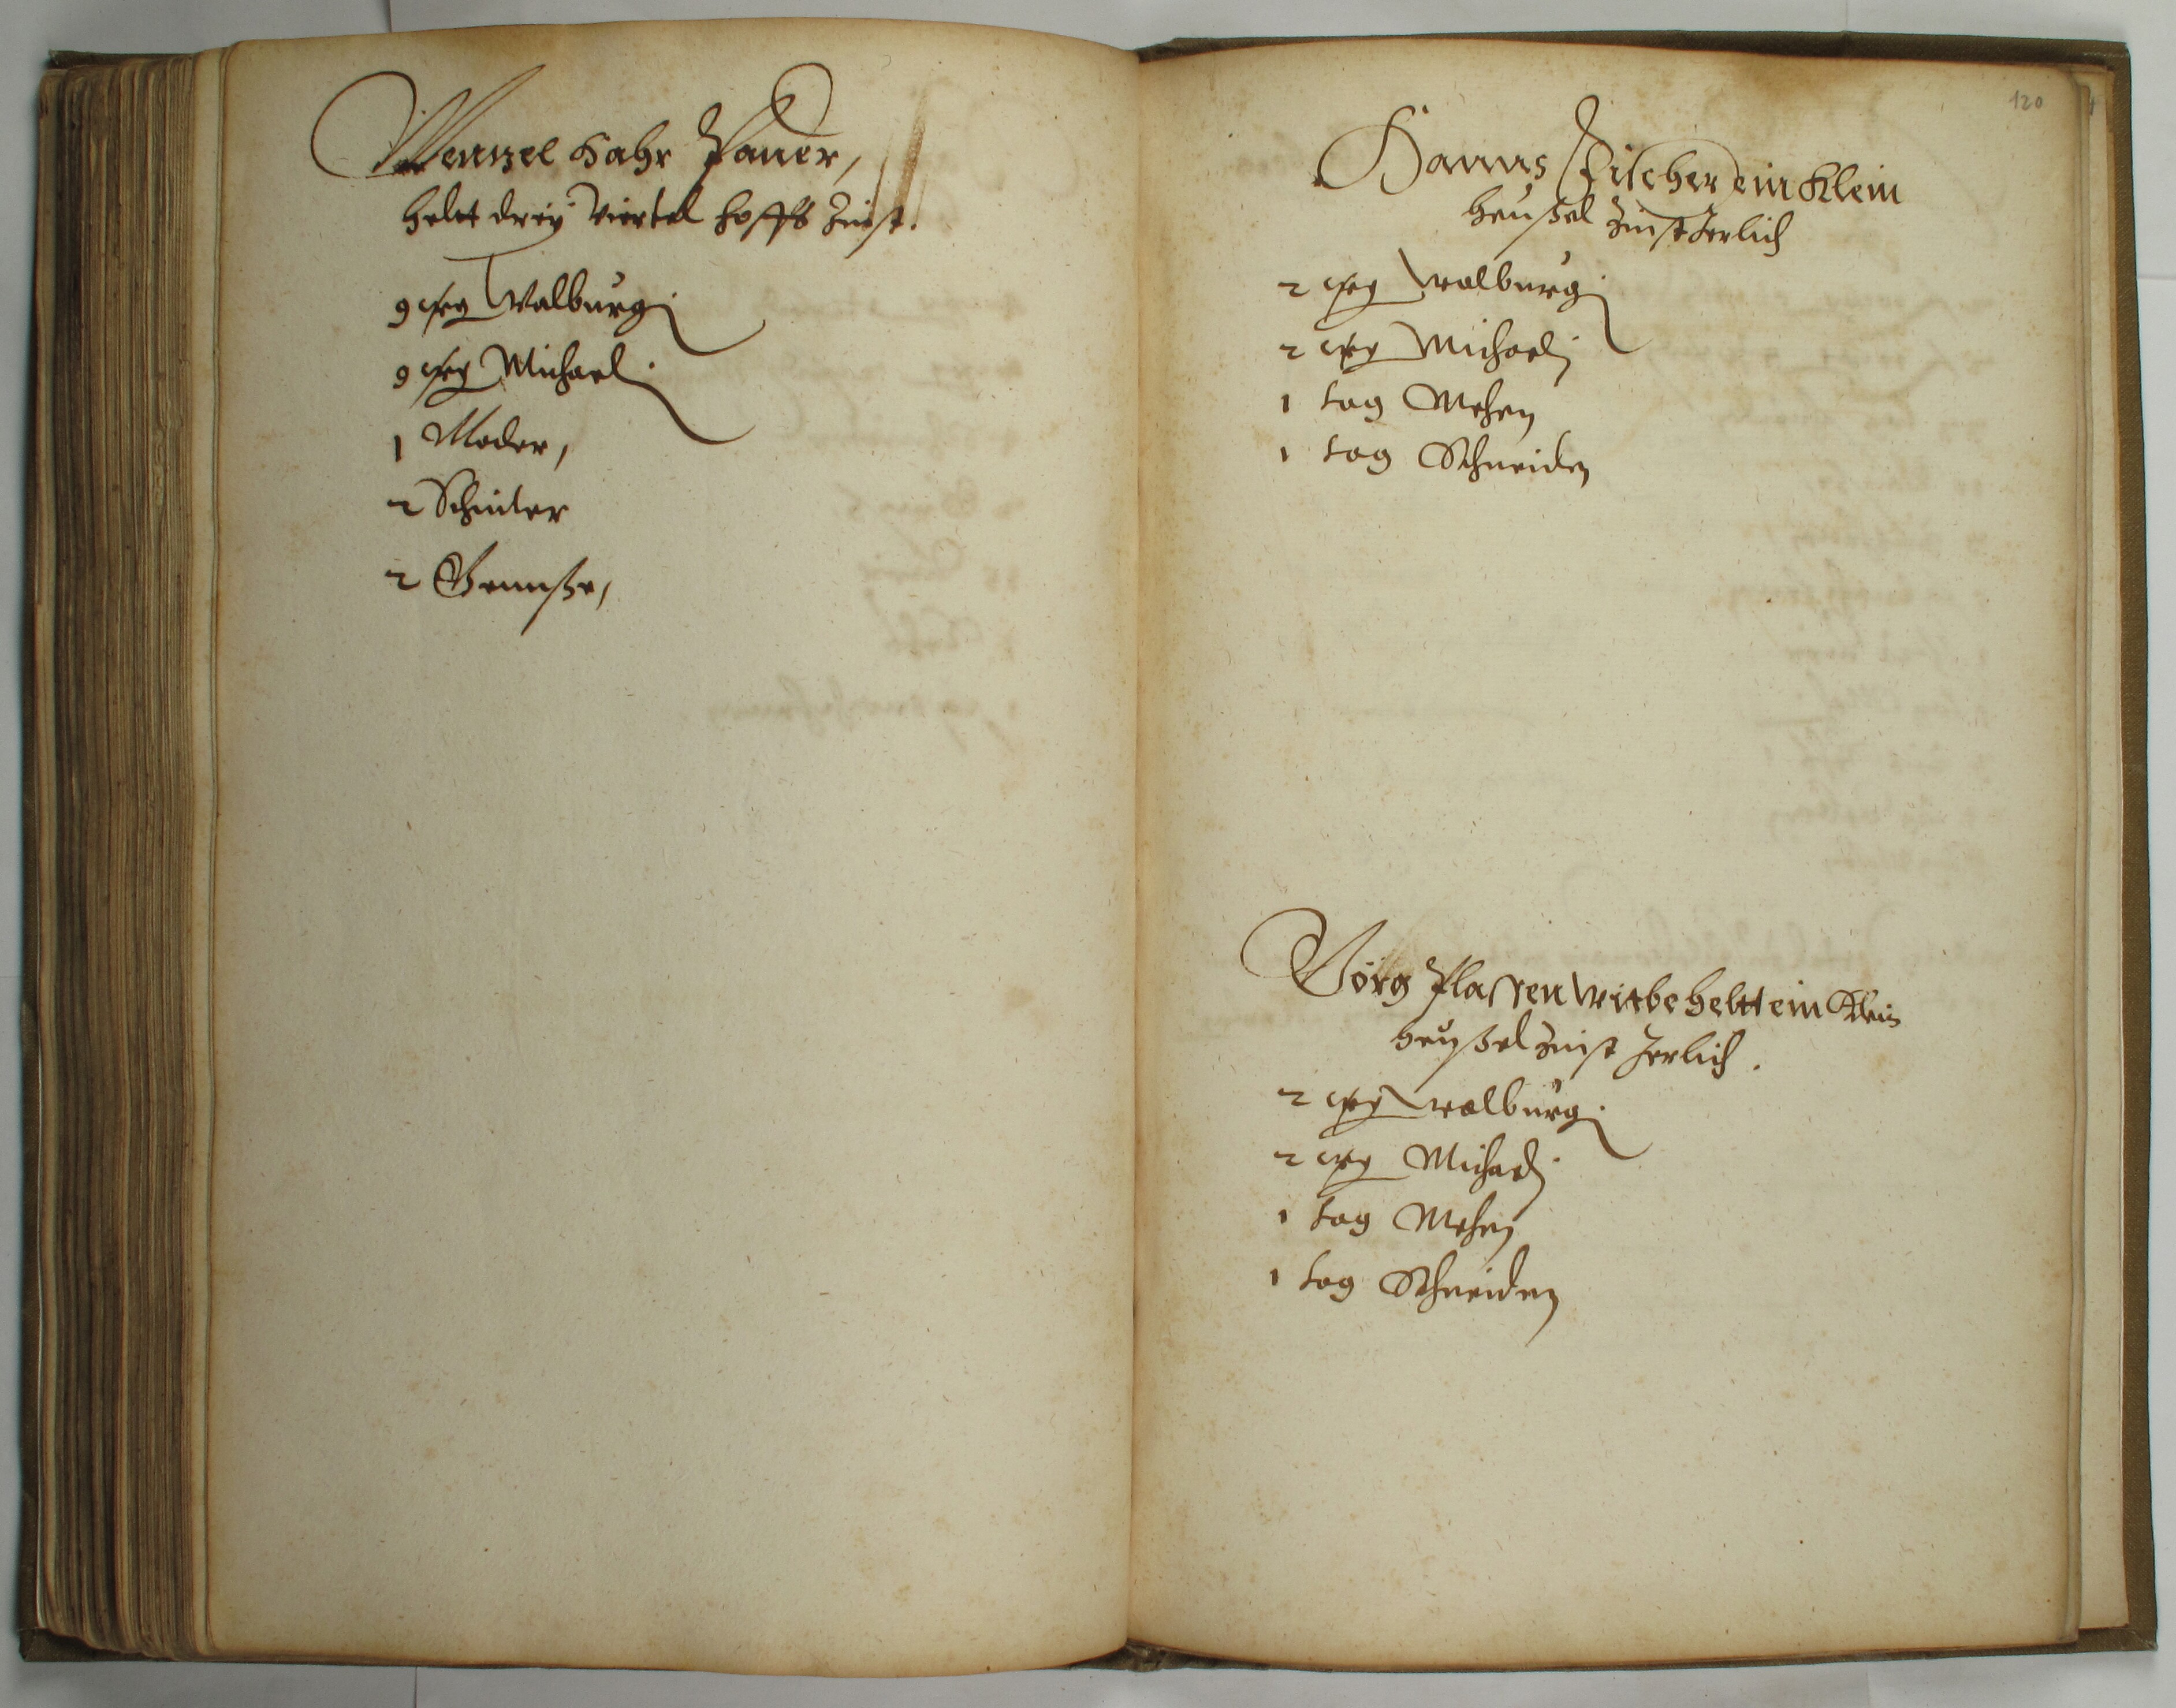 Wentzel Hahr Pauer,
helt dreÿ Viertel hoffs Zinst.
9 gr Walburgi
9 gr Michaeli
1 Mader,
2 Schnitter
2 Gennsze,
120
Hanns Fischer ein klein
heuszel Zinst Jerlich
2 gr Walburgi
2 gr Michaeli
1 tag Mehen
1 tag Schneiden
Görg Plassen witbe heltt ein Klein
heuszel Zinst Jerlich.
2 gr walburgi
2 gr Michaeli
1 tag Mehen
1 tag Schneiden